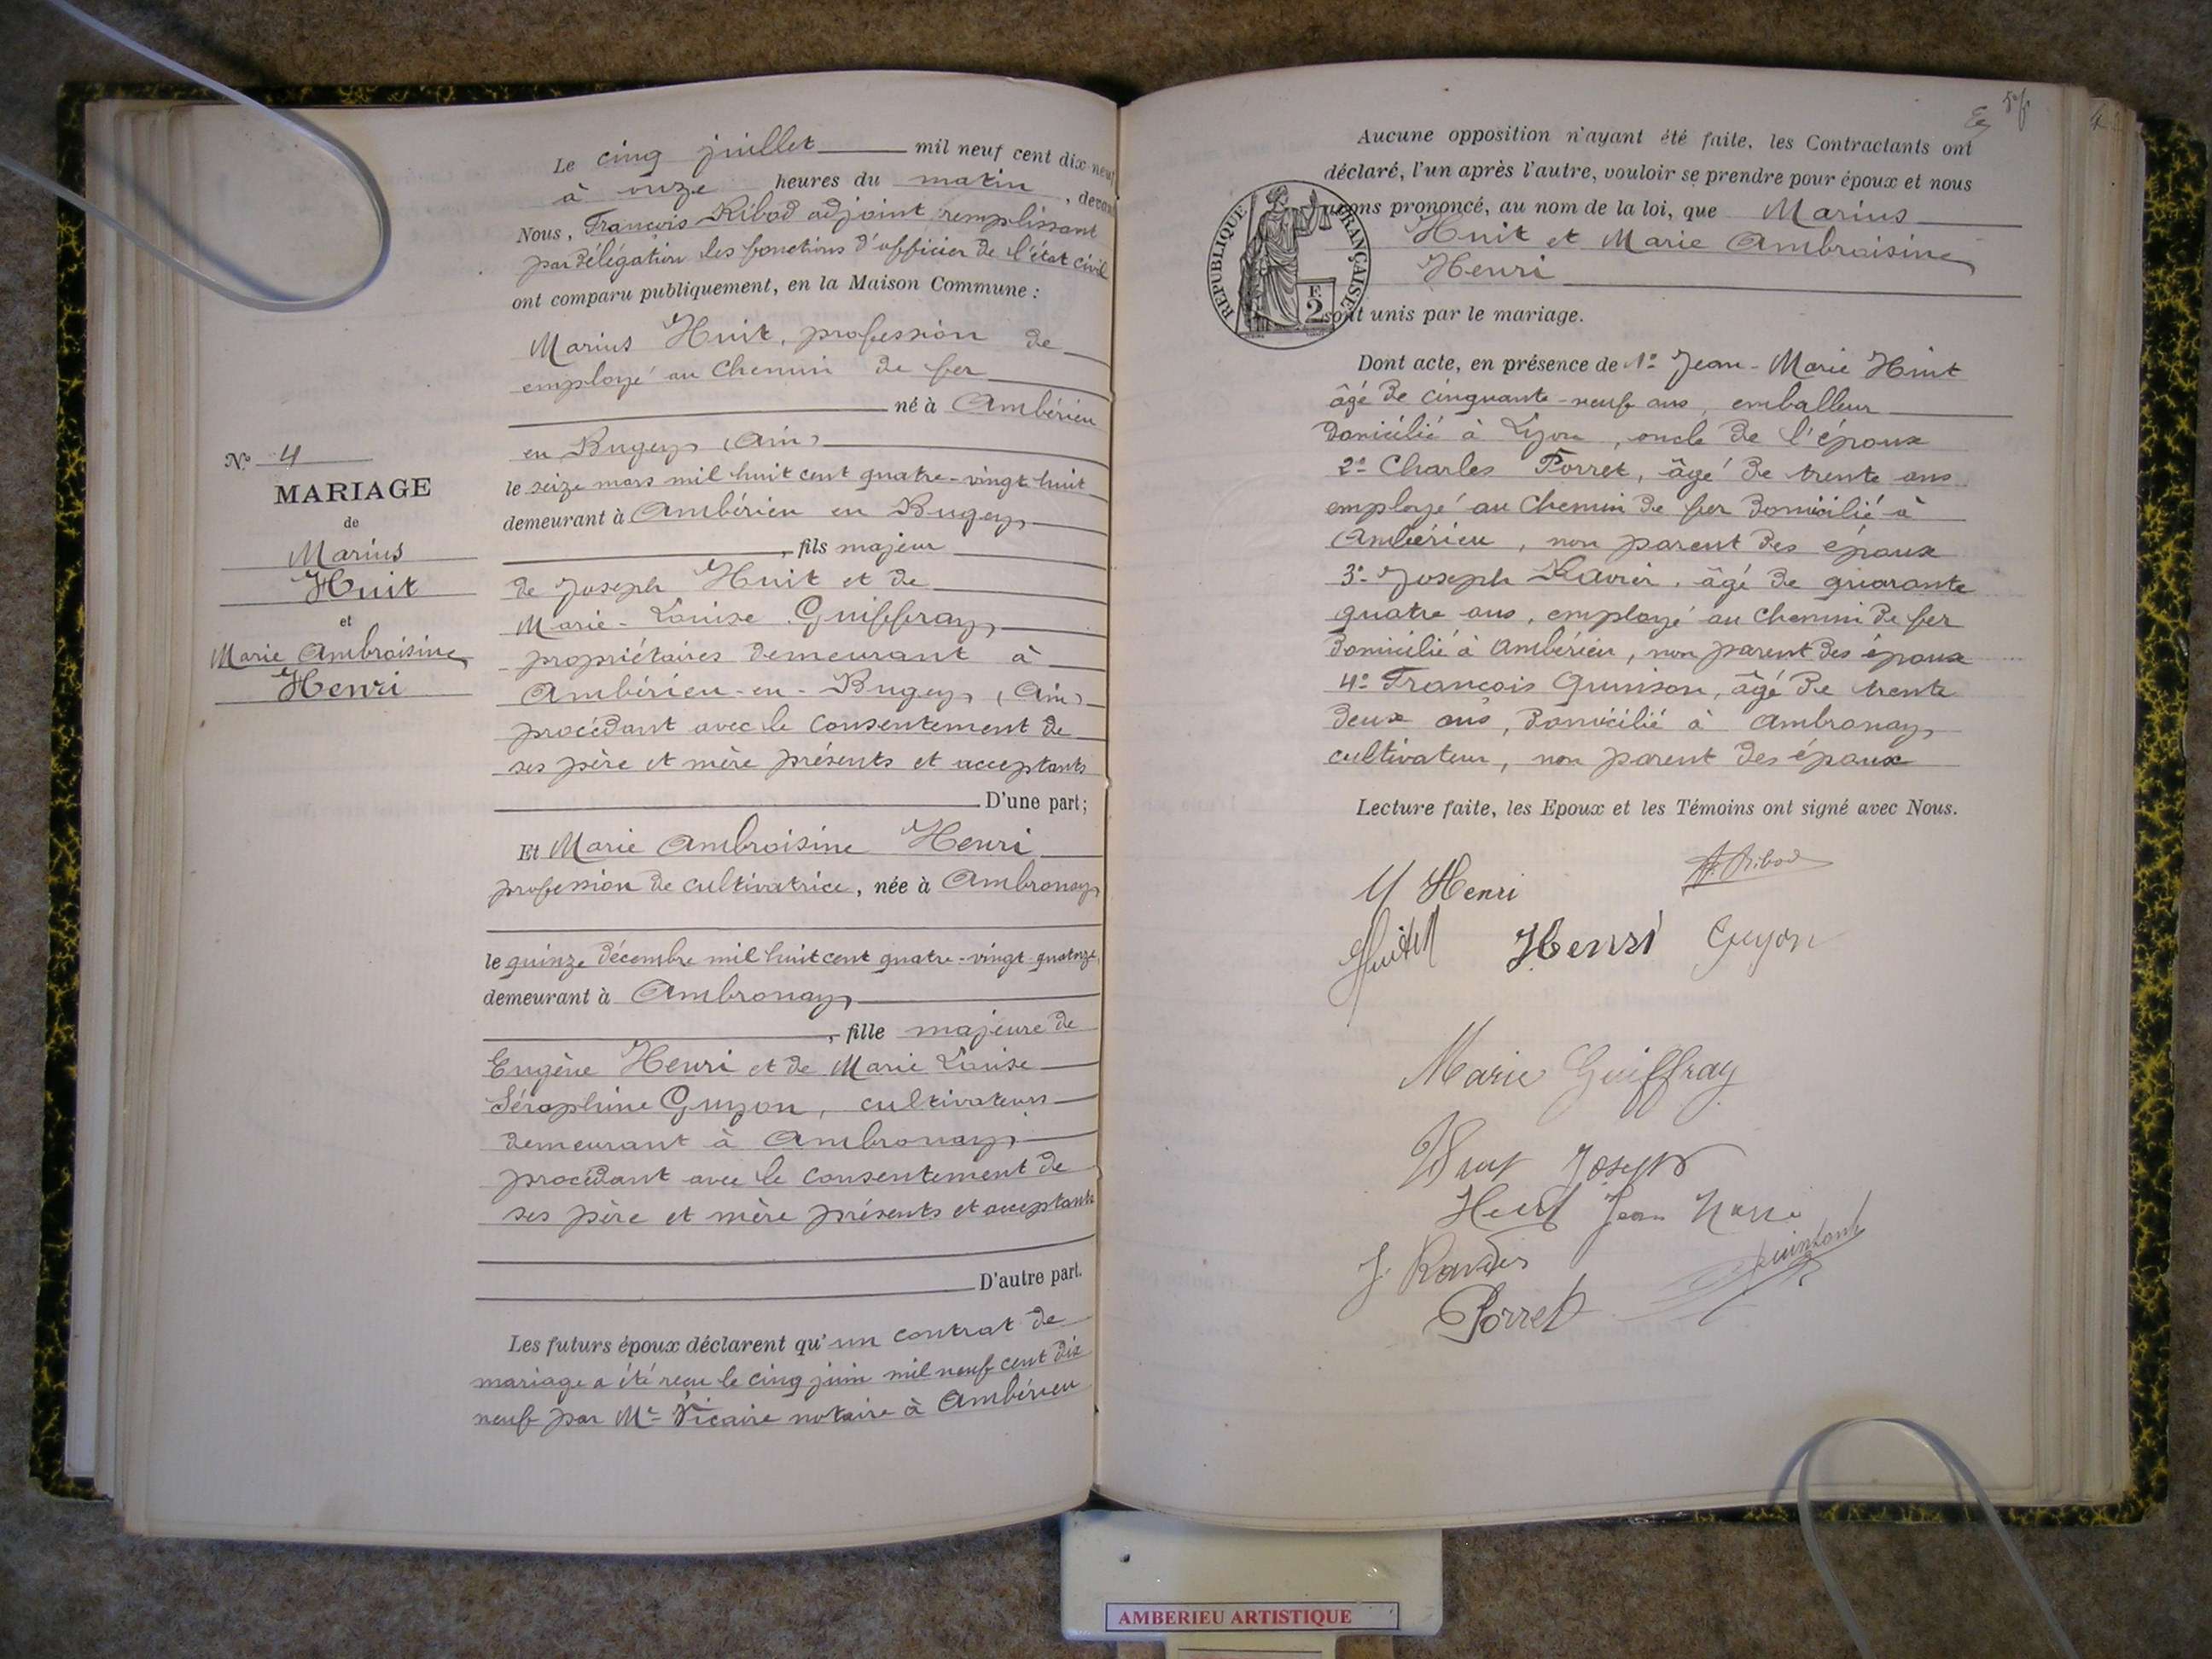 Le cinq juillet mil neuf cent dix-neuf
à onze heures du matin, devant
Nous, François Ribod adjoint remplissant
par délégation les fonctions d'officier de l'état civil
ont comparu publiquement, en la Maison Commune :
Marius Huit, profession de
employé au Chemin de fer
né à Ambérieu
en Bugey (Ain)
le seize mars mil huit cent quatre-vingt huit
demeurant à Ambérieu en Bugey
, fils majeur
de Joseph Huit et de
Marie-Louise Guiffray
propriétaires demeurant à
Ambérieu-en-Bugey (Ain)
procédant avec le consentement de
ses père et mère présents et acceptants
D'une part;
Et Marie Ambroisine Henri
profession de cultivatrice, née à Ambronay
le quinze décembre mil huit cent quatre-vingt-quatorze
demeurant à Ambronay
, fille majeure de
Eugène Henri et de Marie Louise
Séraphine Guyon, cultivateurs
demeurant à Ambronay
procédant avec le consentement de
ses père et mère présents et acceptants
D'autre part.
Les futurs époux déclarent qu'un contrat de
mariage a été reçu le cinq juin mil neuf cent dix
neuf par Me Vicaire notaire à Ambérieu
No 4
MARIAGE
de
Marius
Huit
et
Marie Ambroisine
Henri
Aucune opposition n'ayant été faite, les Contractants ont
déclaré, l'un après l'autre, vouloir se prendre pour époux et nous
avons prononcé, au nom de la loi, que Marius
Huit et Marie Ambroisine
Henri
sont unis par le mariage.
REPUBLIQUE FRANÇAISE
F.
2
Dont acte, en présence de 1o Jean-Marie Huit
âgé de cinquante-neuf ans, emballeur
domicilié à Lyon, oncle de l'époux
2o Charles Porret, âgé de trente ans
employé au Chemin de fer domicilié à
Ambérieu, non parent des époux
3o Joseph Ravier, âgé de quarante
quatre ans, employé au Chemin de fer
domicilié à Ambérieu, non parent des époux
4o François Quinson, âgé de trente
deux ans, domicilié à Ambronay,
cultivateur, non parent des époux
Lecture faite, les Epoux et les Témoins ont signé avec Nous.
M Henri
Ribod
Huit M
Henri
Guyon
Marie Guiffray
Huit Joseph
Huit Jean Marie
J. Ravier
Porret
AMBERIEU ARTISTIQUE